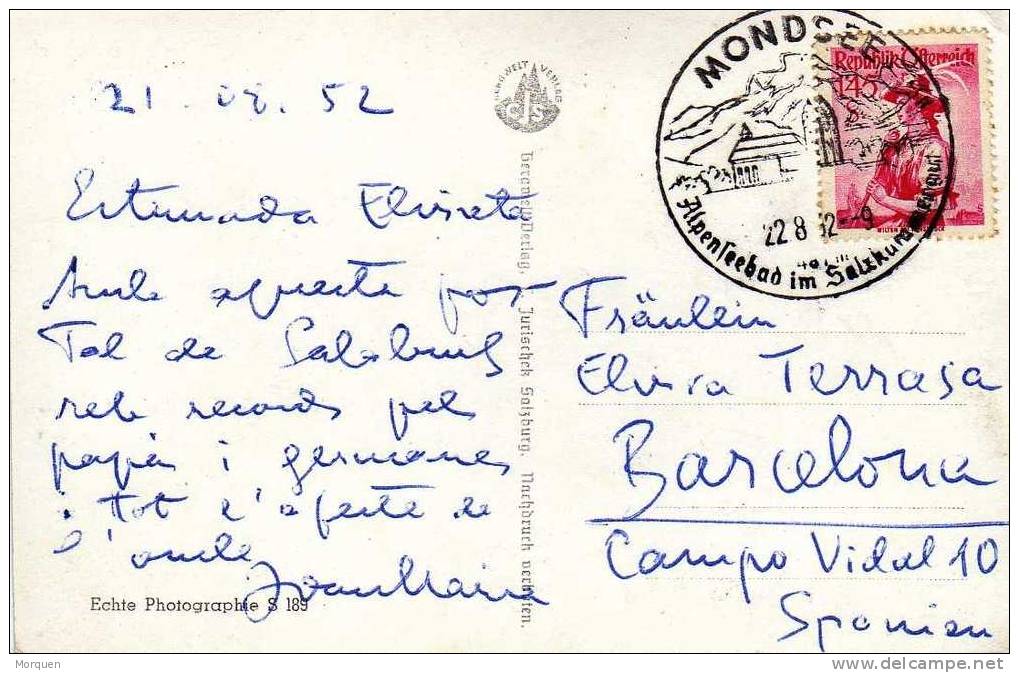 21.08.52
Estimada Elvireta
Amb aquesta pos
Tal de Salzburg
reb records pel
papà i germanes
i tot l'afecte de
l'oncle
Joan Maria
Echte Photographie S 189
BERGWELT VERLAG
CJS
Verlag, C. Jurischek Salzburg. Nachdruck verboten.
MONDSEE
Alpenseebad im Salzkammergut
22.8.52--9
Republik Österreich
1.45
WILTEN
Fräulein
Elvira Terrasa
Barcelona
Campo Vidal 10
Spanien
Morquen
delcampe.net